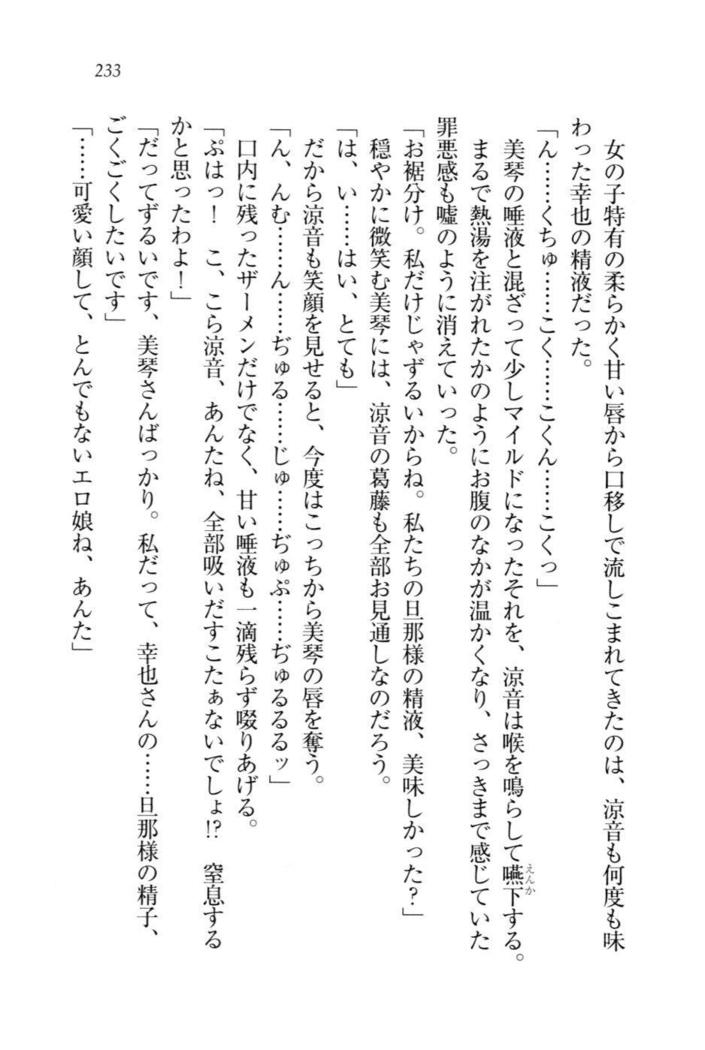 233
女の子特有の柔らかく甘い唇から口移しで流しこまれてきたのは、涼音も何度も味
わった幸也の精液だった。
「ん……くちゅ……こく……こくん……こくっ」
美琴の唾液と混ざって少しマイルドになったそれを、涼音は喉を鳴らして嚥下する。
えんか
まるで熱湯を注がれたかのようにお腹のなかが温かくなり、さっきまで感じていた
罪悪感も嘘のように消えていった。
「お裾分け。私だけじゃずるいからね。私たちの旦那様の精液、美味しかった?」
穏やかに微笑む美琴には、涼音の葛藤も全部お見通しなのだろう。
「は、い……はい、とても」
だから涼音も笑顔を見せると、今度はこっちから美琴の唇を奪う。
「ん、んむ……ん……ぢゅる……じゅ……ぢゅぷ……ぢゅるるるッ」
口内に残ったザーメンだけでなく、甘い唾液も一滴残らず啜りあげる。
「ぷはっ! こ、こら涼音、あんたね、全部吸いだすこたぁないでしょ!? 窒息する
かと思ったわよ!」
「だってずるいです、美琴さんばっかり。私だって、幸也さんの……旦那様の精子、
ごくごくしたいです」
「……可愛い顔して、とんでもないエロ娘ね、あんた」